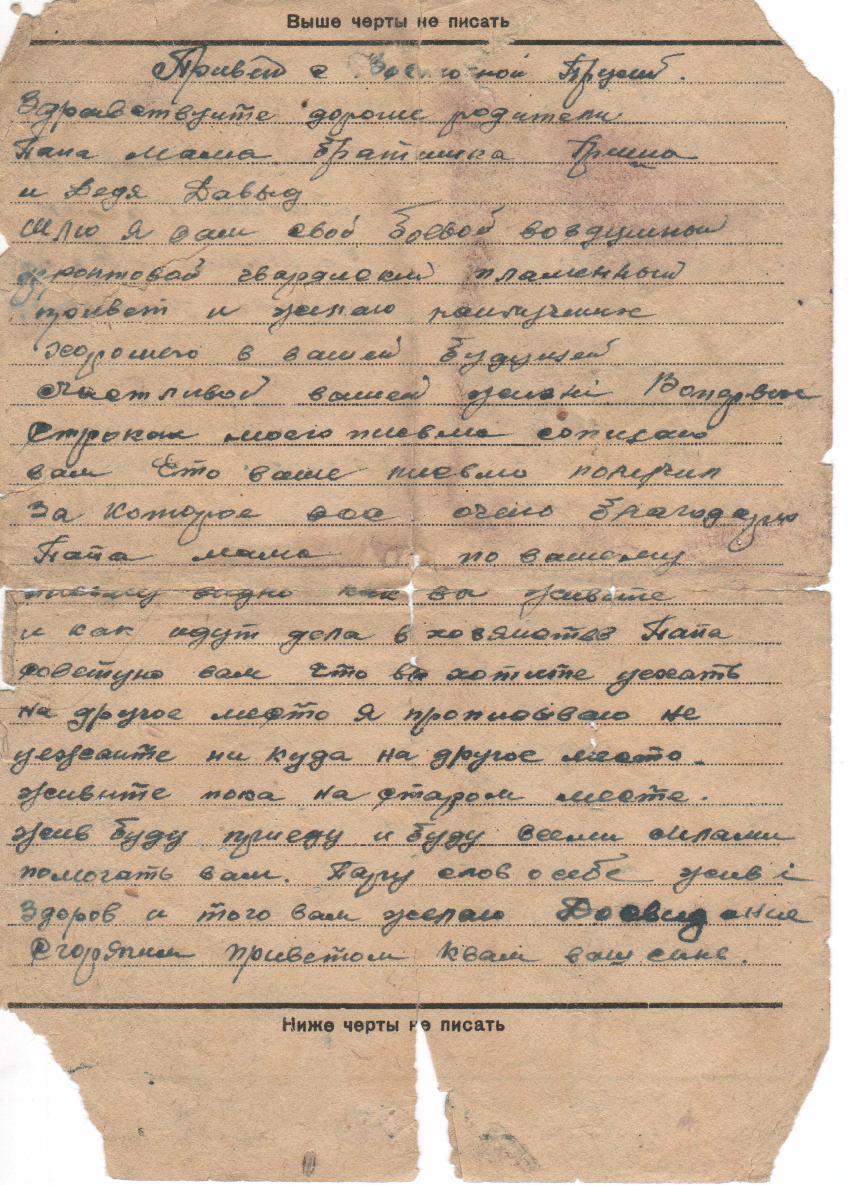 Выше черты не писать
Привет с Восточной Прусии.
Здравствуите дорогие родители
Папа мама братишка Гриша
и Дедя Давыд
Шлю я вам свой боевой воздушный
фронтовой гвардиский пламенный
привет и желаю наилучших
хорошего в вашей будущей
счастливой вашей жизни Вопервых
строках моего писвма сопщаю
вам Что ваше писвмо получил
За которое вас очень благодарю
Папа мама по вашему
писвму видно как вы живете
и как идут дела в хозяйстве Папа
советую вам что вы хотите уехать
на другое место Я прописываю не
уезжаите ни куда на другое место.
живите пока на старом месте.
жив буду приеду и буду всеми силами
помогать вам. Пару слов о себе жив і
здоров и того вам желаю Досвидание
Сгорячим приветом квам ваш сине.
Ниже черты не писать